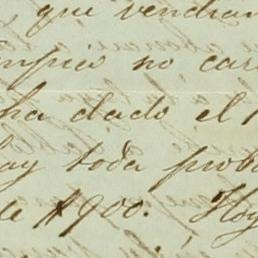 que vendran
no car
ha dado el
ay toda prob
de $900. Hoy